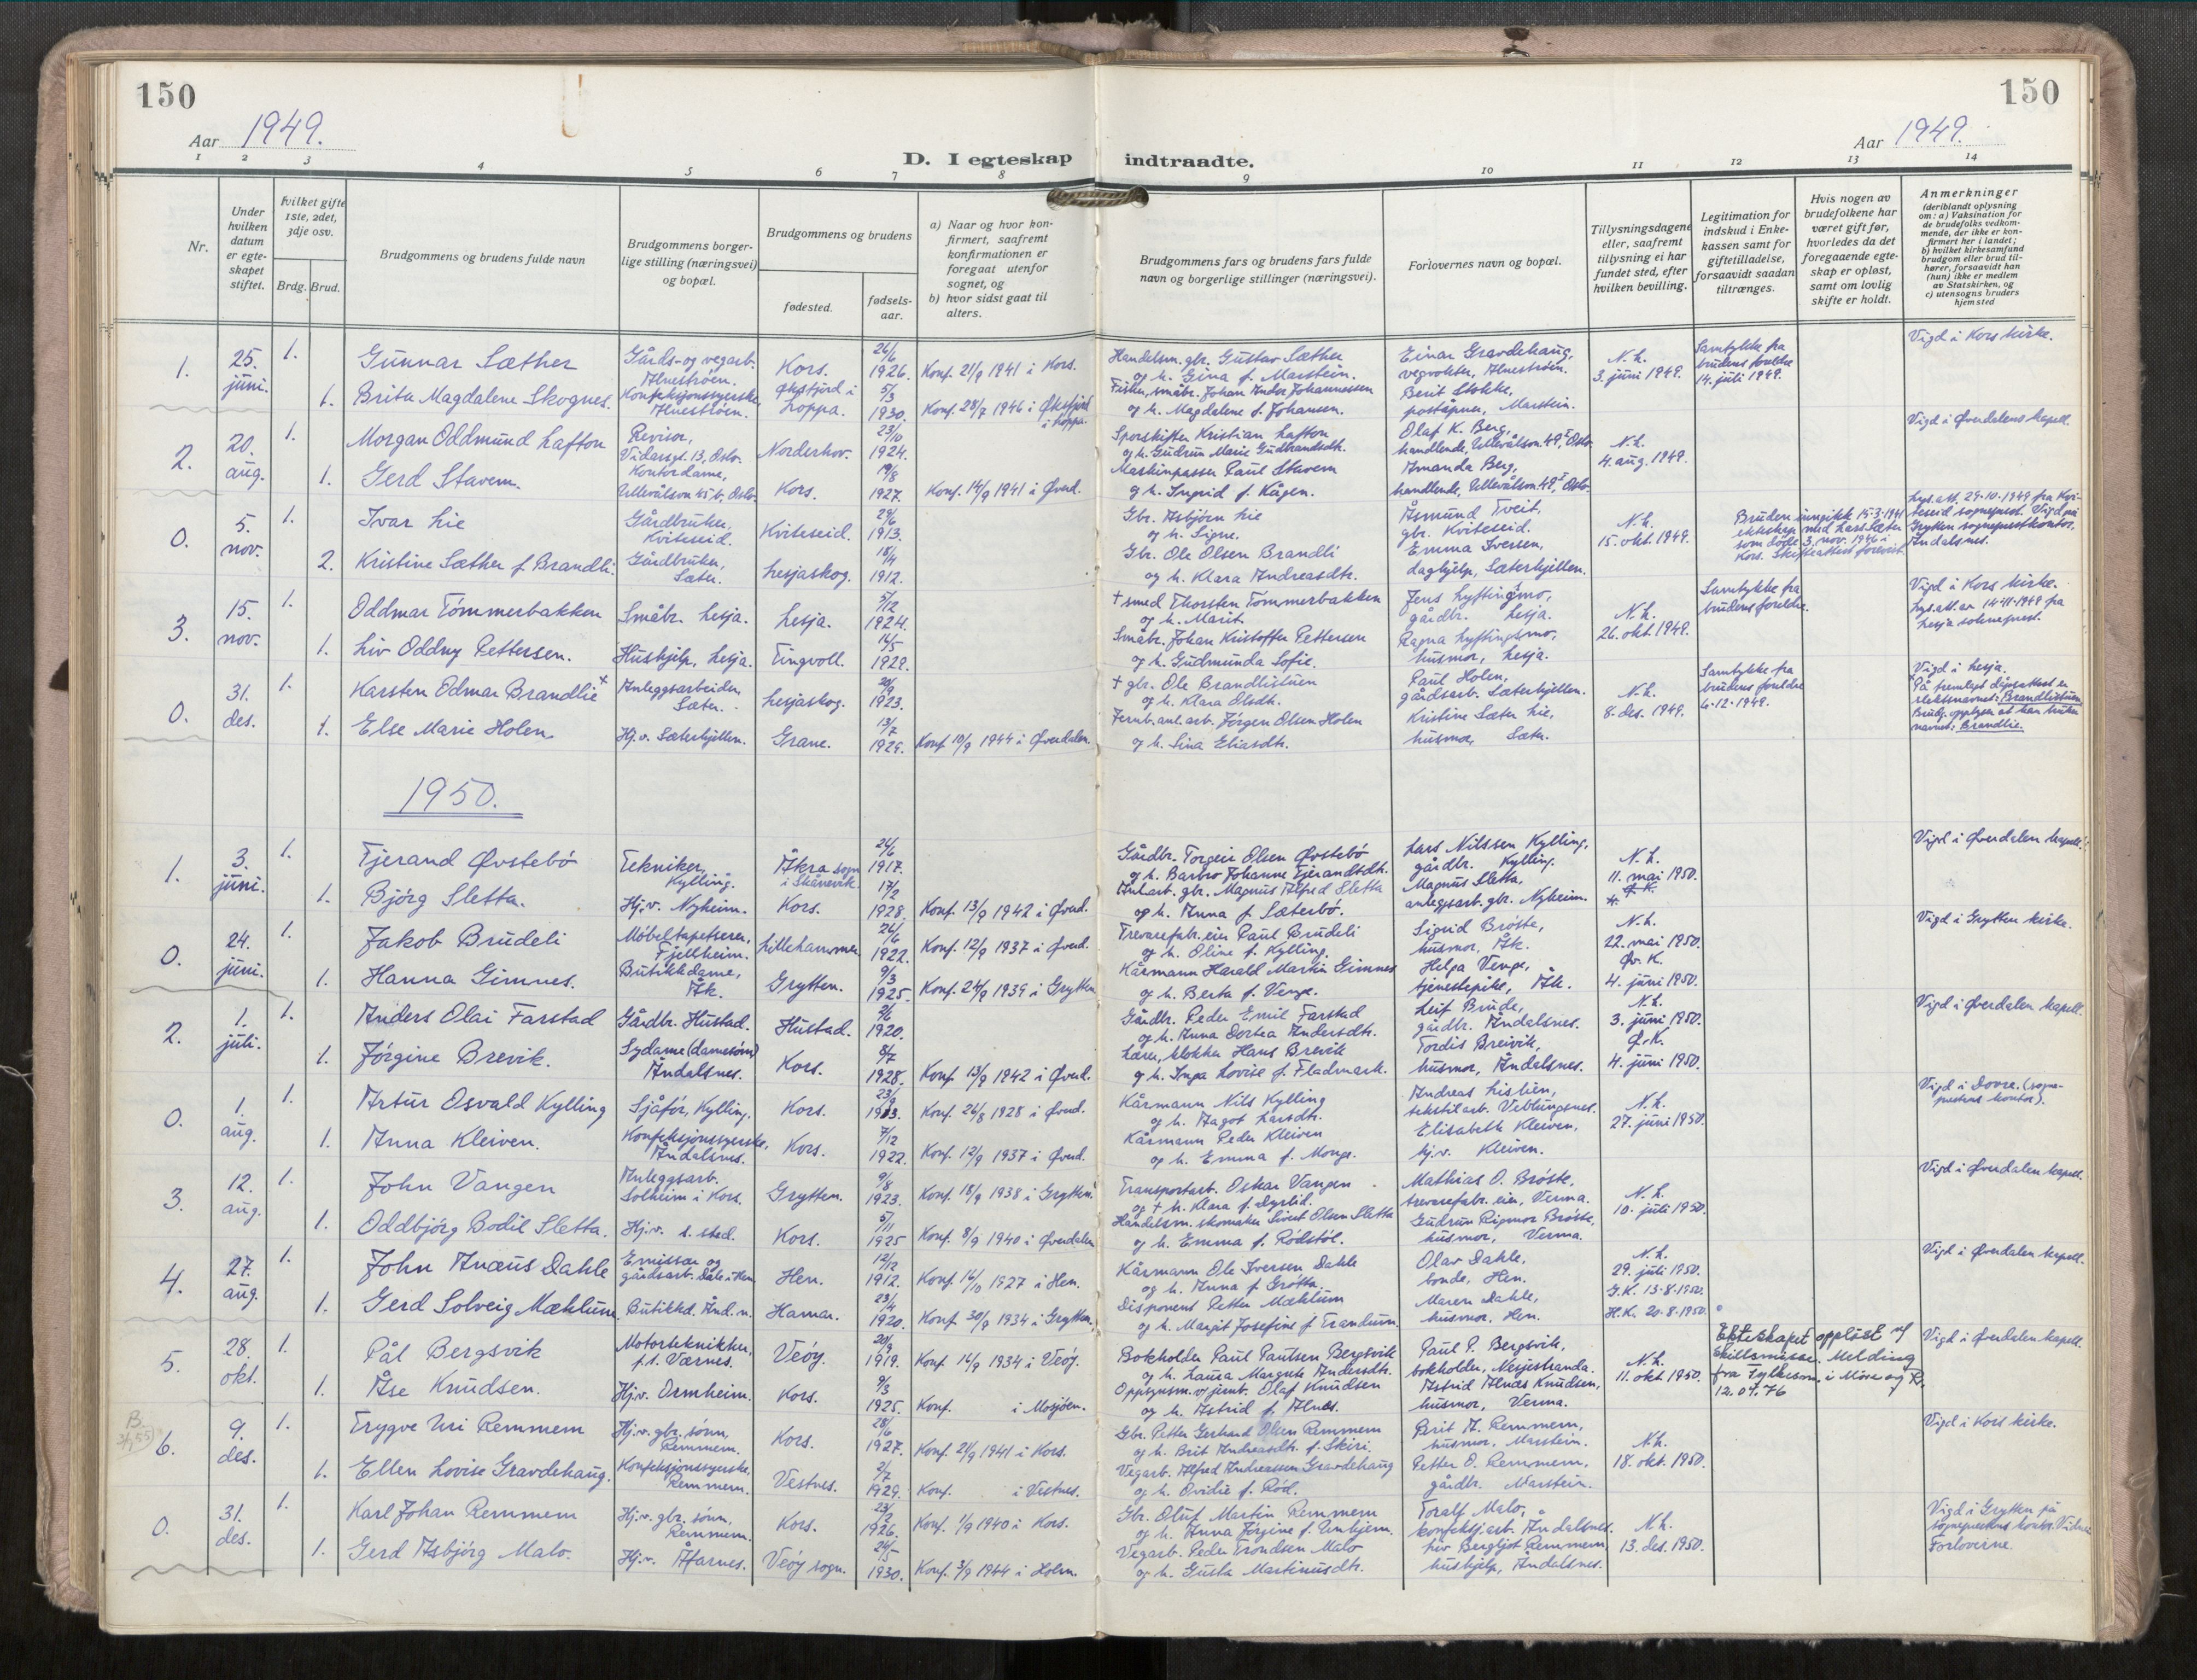 150
150
Aar 1949.
Aar 1949.
D. I egteskap indtraadte.
1 2 3 4 5 6 7 8 9 10 11 12 13 14
Nr.
Under hvilken datum er egteskapet stiftet.
hvilket gifte 1ste, 2det, 3dje osv.
Brdg. Brud.
Brudgommens og brudens fulde navn
Brudgommens borgerlige stilling (næringsvei) og bopæl.
Brudgommens og brudens
fødested.
fødselsaar.
a) Naar og hvor konfirmert, saafremt konfirmationen er foregaat utenfor sognet, og
b) hvor sidst gaat til alters.
Brudgommens fars og brudens fars fulde navn og borgerlige stillinger (næringsvei).
Forlovernes navn og bopæl.
Tillysningsdagene eller, saafremt tillysning ei har fundet sted, efter hvilken bevilling.
Legitimation for indskud i Enkekassen samt for giftetilladelse, forsaavidt saadan tiltrænges.
Hvis nogen av brudefolkene har været gift før, hvorledes da det foregaaende egteskap er opløst, samt om lovlig skifte er holdt.
Anmerkninger
(deriblandt oplysning om: a) Vaksination for de brudefolks vedkommende, der ikke er konfirmert her i landet; b) hvilket kirkesamfund brudgom eller brud tilhører, forsaavidt han (hun) ikke er medlem av Statskirken, og c) utensogns bruders hjemsted
1. 25. juni. 1. Gunnar Sæther Gårds- og vegarb. Alnestrøen. Kors. 24/6 1926. Konf. 21/9 1941 i Kors. Handelsm. gbr. Gustav Sæther og h. Gina f. Marstein. Einar Gravdehaug, vegvokter, Alnestrøen. N.h. 3. juni 1949. Samtykke fra brudens foreldre 14. juli 1949. Vigd i Kors kirke.
1. Brita Magdalene Skognes. Konfeksjonssyerske, Alnestrøen. Øksfjord i Loppa. 5/3 1930. Konf. 28/7 1946 i Øksfjord i Loppa. Fisker, småbr. Johan Andor Johannessen og h. Magdalene f. Johansen. Berit Stokke, poståpner, Marstein.
2. 20. aug. 1. Morgan Oddmund Lafton Revisor, Vidarsgt. 13, Oslo. Norderhov. 23/10 1924. Sporskifter Kristian Lafton og h. Gudrun Marie Gudbrandsdt. Olaf K. Berg, handlende, Ullevålsvn. 49, Oslo. N.h. 4. aug. 1949. Vigd i Øverdalens kapell.
1. Gerd Stavem. Kontordame, Ullevålsvn 45 b, Oslo. Kors. 19/8 1927. Konf. 14/9 1941 i Øverd. Maskinpasser Paul Stavem og h. Ingrid f. Kågen. Amanda Berg, handlende, Ullevålsvn. 49, Oslo.
0. 5. nov. 1. Ivar Lie Gårdbruker, Kviteseid. Kviteseid. 29/6 1913. Gbr. Asbjørn Lie og h. Signe. Åsmund Tveit, gbr. Kviteseid. N.h. 15. okt. 1949. Bruden inngikk 15-3-1941 ekteskap med Lars Sæter som døde 3. nov. 1946 i Kors. Skifteattest forevist. Lys.att. 29-10-1949 fra Kviteseid sogneprest. Vigd på Grytten sogneprestkontor, Åndalsnes.
2. Kristine Sæther f. Brandli. Gårdbruker, Sæter. Lesjaskog. 18/4 1912. Gbr. Ole Olsen Brandli og h. Klara Andreasdtr. Emma Iversen, daghjelp, Sæterhjellen.
3. 15. nov. 1. Oddmar Tømmerbakken Småbr. Lesja. Lesja. 5/12 1924. + smed Thorsten Tømmerbakken og h. Marit. Jens Lyftingsmo, gårdbr. Lesja. N.h. 26. okt. 1949. Samtykke fra brudens foreldre. Vigd i Kors kirke. Lys.att. av 14-11-1949 fra Lesja sokneprest.
1. Liv Oddny Pettersen. Hushjelp, Lesja. Tingvoll. 14/5 1929. Småbr. Johan Kristoffer Pettersen og h. Gudmunda Sofie. Ragna Lyftingsmo, husmor, Lesja.
0. 31. des. 1. Karsten Odmar Brandlie + Anleggsarbeider, Sæter. Lesjaskog. 20/9 1923. + gbr. Ole Brandlistuen og h. Klara Olsdt. Paul Holen, gårdsarb. Sæterhjellen. N.h. 8. des. 1949. Samtykke fra brudens foreldre 6-12-1949. Vigd i Lesja. På fremlagt dåpsattest er slektsnavnet: Brandlistuen. Brudg. opplyser at han bruker navnet: Brandlie.
1. Else Marie Holen. Hj.v. Sæterhjellen. Grane. 13/7 1929. Konf 10/9 1944 i Øverdalen. Jernb.anl.arb. Jørgen Olsen Holen og h. Lina Eliasdt. Kristine Sæter Lie, husmor, Sæter.
1950.
1. 3. juni. 1. Tjerand Øvstebø Tekniker, Kylling. Åkra sogn i Skånevik. 24/6 1917. Gårdbr. Torgeir Olsen Øvstebø og h. Barbro Johanne Tjerandsdt. Lars Nilssen Kylling, gårdbr. Kylling. N.h. 11. mai 1950. Vigd i Øverdalen kapell.
1. Bjørg Sletta. Hj.v. Nyheim. Kors. 17/2 1928. Konf. 13/9 1942 i Øverd. Anl.arb. gbr. Magnus Alfred Sletta og h. Anna f. Sæterbø. Magnus Sletta, anleggsarb. gbr. Nyheim.
0. 24. juni. 1. Jakob Brudeli Møbeltapetserer, Fjellheim. Lillehammer. 26/6 1922. Konf. 12/9 1937 i Øverd. Trevarefabr.eier Paul Brudeli og h. Oline f. Kylling. Sigrid Brøste, husmor, Åk. N.h. 22. mai 1950. Øv. K. Vigd i Grytten kirke.
1. Hanna Gimnes. Butikkdame, Åk. Grytten. 9/3 1925. Konf. 24/9 1939 i Grytten. Kårmann Harald Martin Gimnes og h. Berta f. Venge. Helga Venge, tjenestepike, Åk. 4. juni 1950.
2. 1. juli. 1. Anders Olai Farstad Gårdbr. Hustad. Hustad. 9/6 1920. Gårdbr. Peder Emil Farstad og h. Anna Dortea Andersdt. Leif Brude, gårdbr. Åndalsnes. N.h. 3. juni 1950. Ø.K. Vigd i Øverdalen kapell.
1. Jørgine Brevik. Sydame (damesøm) Åndalsnes. Kors. 8/7 1928. Konf. 13/9 1942 i Øverd. Lærer, klokker Hans Brevik og h. Inga Lovise f. Fladmark. Tordis Breivik, husmor, Åndalsnes. 4. juni 1950.
0. 1. aug. 1. Artur Osvald Kylling Sjåfør, Kylling. Kors. 23/9 1913. Konf. 26/8 1928 i Øverd. Kårmann Nils Kylling og h. Aagot Larsdt. Andreas Lislien, tekstilarb. Veblungsnes. N.h. 27. juni 1950. Vigd i Dovre. (sogneprestens kontor).
1. Anna Kleiven. Konfeksjonssyerske, Åndalsnes. Kors. 7/12 1922. Konf. 12/9 1937 i Øverd. Kårmann Peder Kleiven og h. Emma f. Monge. Elisabeth Kleiven, hj.v. Kleiven.
3. 12. aug. 1. John Vangen Anleggsarb. Solheim i Kors. Grytten. 9/8 1923. Konf. 18/9 1938 i Grytten. Transportarb. Oskar Vangen og + h. Klara f. Myrlid. Mathias O. Brøste, trevarefabr.eier, Verma. N.h. 10. juli 1950. Vigd i Øverdalen kapell.
1. Oddbjørg Bodil Sletta. Hj.v. s. sted. Kors. 5/11 1925 Konf. 8/9 1940 i Øverdalen Handelsm. skomaker Sivert Olsen Sletta og h. Emma f. Rødstøl. Gudrun Rigmor Brøste, husmor, Verma.
4. 27. aug. 1. John Anæus Dahle Emissær og gårdsarb. Dale i Hen. Hen. 12/12 1912. Konf. 16/10 1927 i Hen. Kårmann Ole Iversen Dahle og h. Anna f. Grøtta. Olav Dahle, bonde, Hen. N.h. 29. juli 1950. G.K. 13-8-1950. Vigd i Øverdalen kapell.
1. Gerd Solveig Mæhlum. Butikkd. Ånd.n. Hamar. 23/4 1920. Konf. 30/9 1934 i Grytten. Disponent Petter Mæhlum og h. Margit Josefine f. Trandum. Maren Dahle, husmor, Hen. H.K. 20-8-1950.
5. 28. okt. 1. Pål Bergsvik Motortekniker, p.t. Værnes. Veøy. 20/9 1919. Konf. 16/9 1934 i Veøy. Bokholder Paul Paulsen Bergsvik og h. Laura Margrete Andersdt. Paul P. Bergsvik, bokholder, Nesjestranda. N.h. 11. okt 1950. Ekteskapet oppløst ved skilsmisse. Melding fra Fylkesm. i Møre og R. 12.04.76 Vigd i Øverdalen kapell.
1. Åse Knudsen. Hj.v. Ormheim. Kors. 9/3 1925. Konf. i Mosjøen. Oppsynsm. v. jernb. Olaf Knudsen og h. Astrid f. Alnæs. Astrid Alnæs Knudsen, husmor, Verma.
6. 9. des. 1. Trygve Uri Remmem Hj.v. gbr. sønn, Remmem. Kors. 28/6 1927. Konf. 21/9 1941 i Kors. Gbr. Petter Gerhard Olsen Remmem og h. Brit Andreasdt. f. Skiri. Brit A. Remmem, husmor, Marstein. N.h. 18. okt. 1950. Vigd i Kors kirke.
1. Ellen Lovise Gravdehaug. Konfeksjonssyerske, Remmem. Vestnes. 2/7 1929. Konf. i Vestnes. Vegarb. Alfred Andreassen Gravdehaug og h. Ovidie f. Rød. Petter O. Remmem, gårdbr. Marstein.
0. 31. des. 1. Karl Johan Remmem Hj.v. gbr. sønn, Remmem. Kors. 23/2 1926. Konf. 1/9 1940 i Kors. Gbr. Oluf Martin Remmem og h. Anna Jørgine f. Unhjem. Toralf Malo, konfeksj.arb. Åndalsnes. N.h. 13. des. 1950. Vigd i Grytten på sogneprestens kontor. Vidner: Forloverne.
1. Gerd Asbjørg Malo. Hj.v. Åfarnes. Veøy sogn. 24/5 1930. Konf. 3/9 1944 i Holm. Vegarb. Peder Trondsen Malo og h. Gusta Martinusdt. Liv Bergljot Remmem, hushjelp, Åndalsnes.